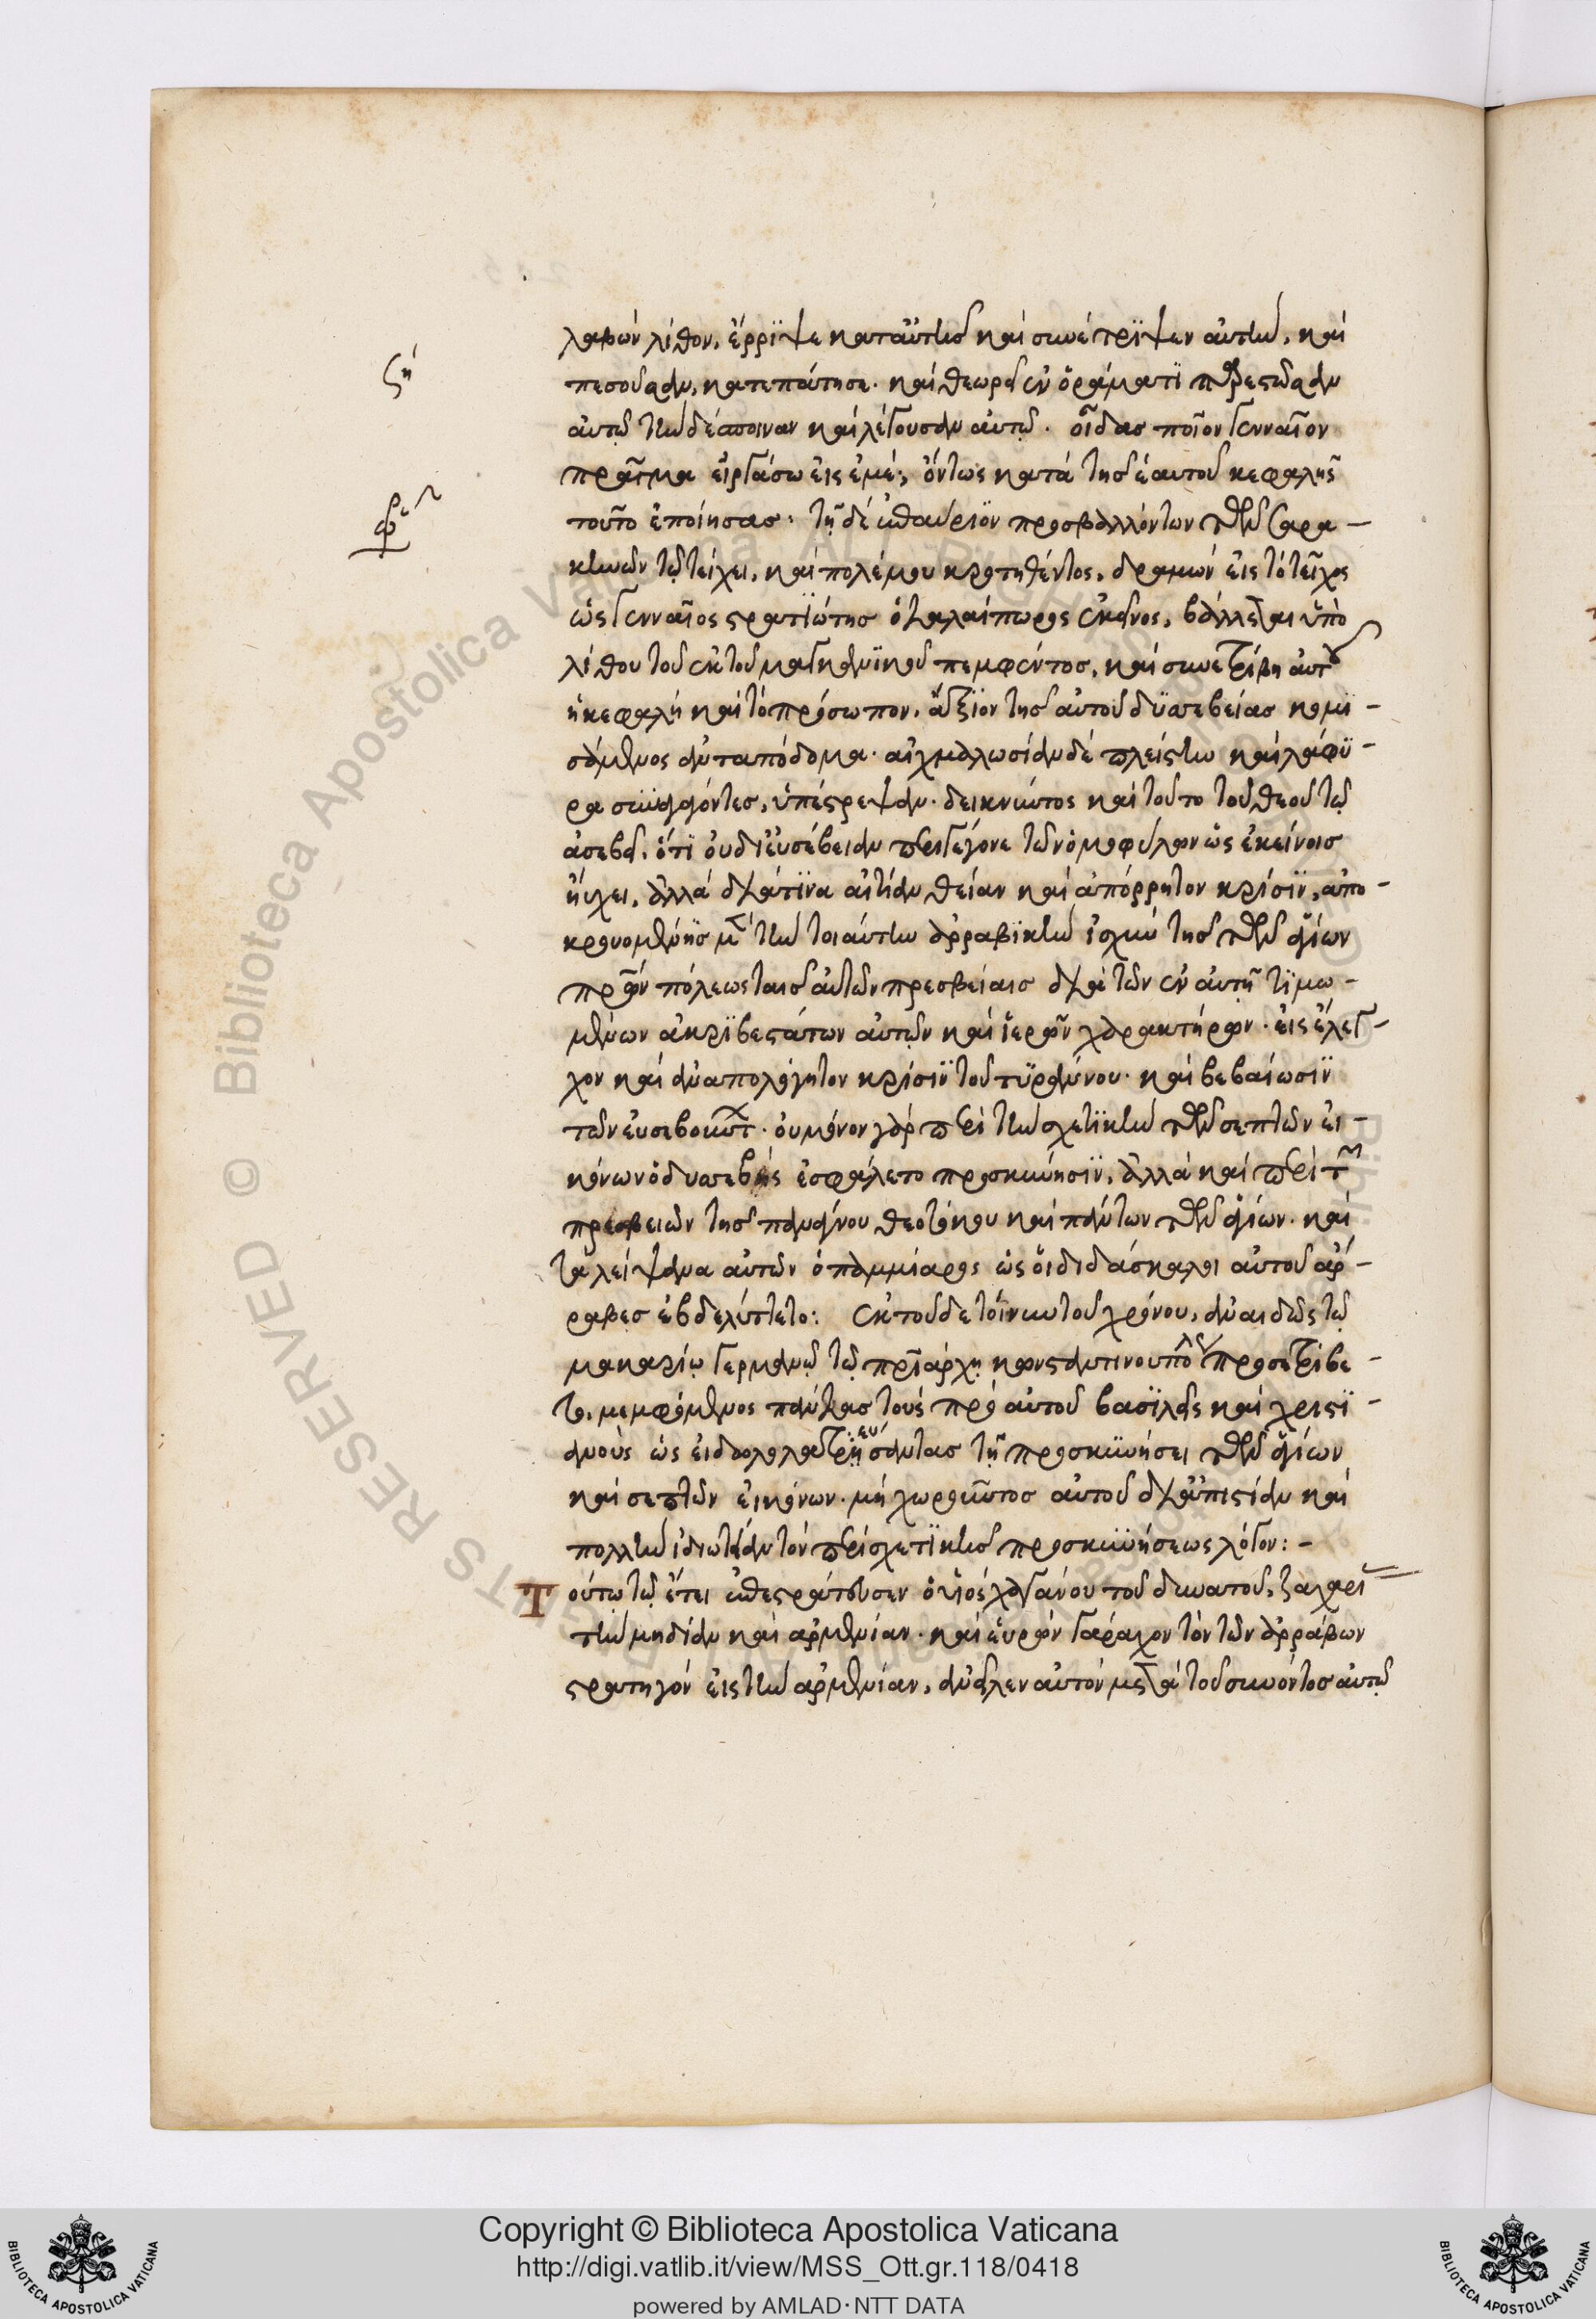 λαβὼν λίθον, ἔρριψε κατ' αὐτῆς καὶ συνέτριψεν αὐτὴν, καὶ
πεσοῦσαν, κατεπάτησε. καὶ θεωρεῖ ἐν ὁράματι παρεστῶσαν
αὐτῷ τὴν δέσποιναν καὶ λέγουσαν αὐτῷ. οἶδας ποῖον γενναῖον
πρᾶγμα εἰργάσω εἰς ἐμέ; ὄντως κατὰ τῆς ἑαυτοῦ κεφαλῆς
τοῦτο ἐποίησας. τῇ δὲ ἐπαύριον προσβαλλόντων τῶν Σαρα-
κηνῶν τῷ τείχει, καὶ πολέμου κροτηθέντος, δραμὼν εἰς τὸ τεῖχος
ὡς γενναῖος στρατιώτης ὁ ταλαίπωρος ἐκεῖνος, βάλλεται ὑπὸ
λίθου τοῦ ἐκ τοῦ μαγγανικοῦ πεμφέντος, καὶ συνετρίβη αὐτοῦ
ἡ κεφαλὴ καὶ τὸ πρόσωπον, ἄξιον τῆς αὐτοῦ δυσσεβείας κομι-
σάμενος ἀνταπόδομα. αἰχμαλωσίαν δὲ πλείστην καὶ λάφυ-
ρα συναγαγόντες, ὑπέστρεψαν. δεικνύντος καὶ τοῦτο τοῦ θεοῦ τῷ
ἀσεβεῖ, ὅτι οὐ δι' εὐσέβειαν περιγέγονε τῶν ὁμοφύλων ὡς ἐκείνοις
ηὔχει, ἀλλὰ διά τινα αἰτίαν θείαν καὶ ἀπόρρητον κρίσιν, ἀπο-
κρουομένης μὲν τὴν τοιαύτην ἀρραβικὴν ἰσχὺν τῆς τῶν ἁγίων
πρῶν πόλεως ταῖς αὐτῶν πρεσβείαις διὰ τῶν ἐν αὐτῇ τιμω-
μένων ἀκριβεστάτων αὐτῶν καὶ ἱερῶν χαρακτήρων. εἰς ἔλεγ-
χον καὶ ἀναπολόγητον κρίσιν τοῦ τυράννου. καὶ βεβαίωσιν
τῶν εὐσεβούντ. οὐ μόνον γὰρ περὶ τὴν σχετικὴν τῶν σεπτῶν εἰ-
κόνων ὁ δυσσεβὴς ἐσφάλετο προσκύνησιν, ἀλλὰ καὶ περὶ τῶν
πρεσβειῶν τῆς παναγίνου θεοτόκου καὶ πάντων τῶν ἁγίων. καὶ
τὰ λείψανα αὐτῶν ὁ παμμίαρος ὡς οἱ διδάσκαλοι αὐτοῦ ἄρ-
ραβες ἐβδελύττετο: ἐκ τοῦδε τοίνυν τοῦ χρόνου, ἀναιδῶς τῷ
μακαρίῳ Γερμανῷ τῷ πριάρχῃ κωνσταντινουπόλεως προσετρίβε-
το, μεμφόμενος πάντας τοὺς πρὸ αὐτοῦ βασιλεῖς καὶ χριστι-
ανοὺς ὡς εἰδωλολατρεύσαντας τῇ προσκυνήσει τῶν ἁγίων
καὶ σεπτῶν εἰκόνων. μὴ χωροῦντος αὐτοῦ δι' ἀπιστίαν καὶ
πολλὴν ἰδιωτείαν τὸν περὶ σχετικῆς προσκυνήσεως λόγον: -
Τούτῳ τῷ ἔτει ἐπεστράτευσεν ὁ υἱὸς χαγάνου τοῦ δυνατοῦ, ξαζαρί
τὴν μηδίαν καὶ ἀρμενίαν. καὶ εὑρὼν Γάραχον τὸν τῶν ἀρράβων
στρατηγὸν εἰς τὴν ἀρμενίαν, ἀνεῖλεν αὐτὸν μετὰ τοῦ συνόντος αὐτῷ
Copyright © Biblioteca Apostolica Vaticana
http://digi.vatlib.it/view/MSS_Ott.gr.118/0418
powered by AMLAD·NTT DATA